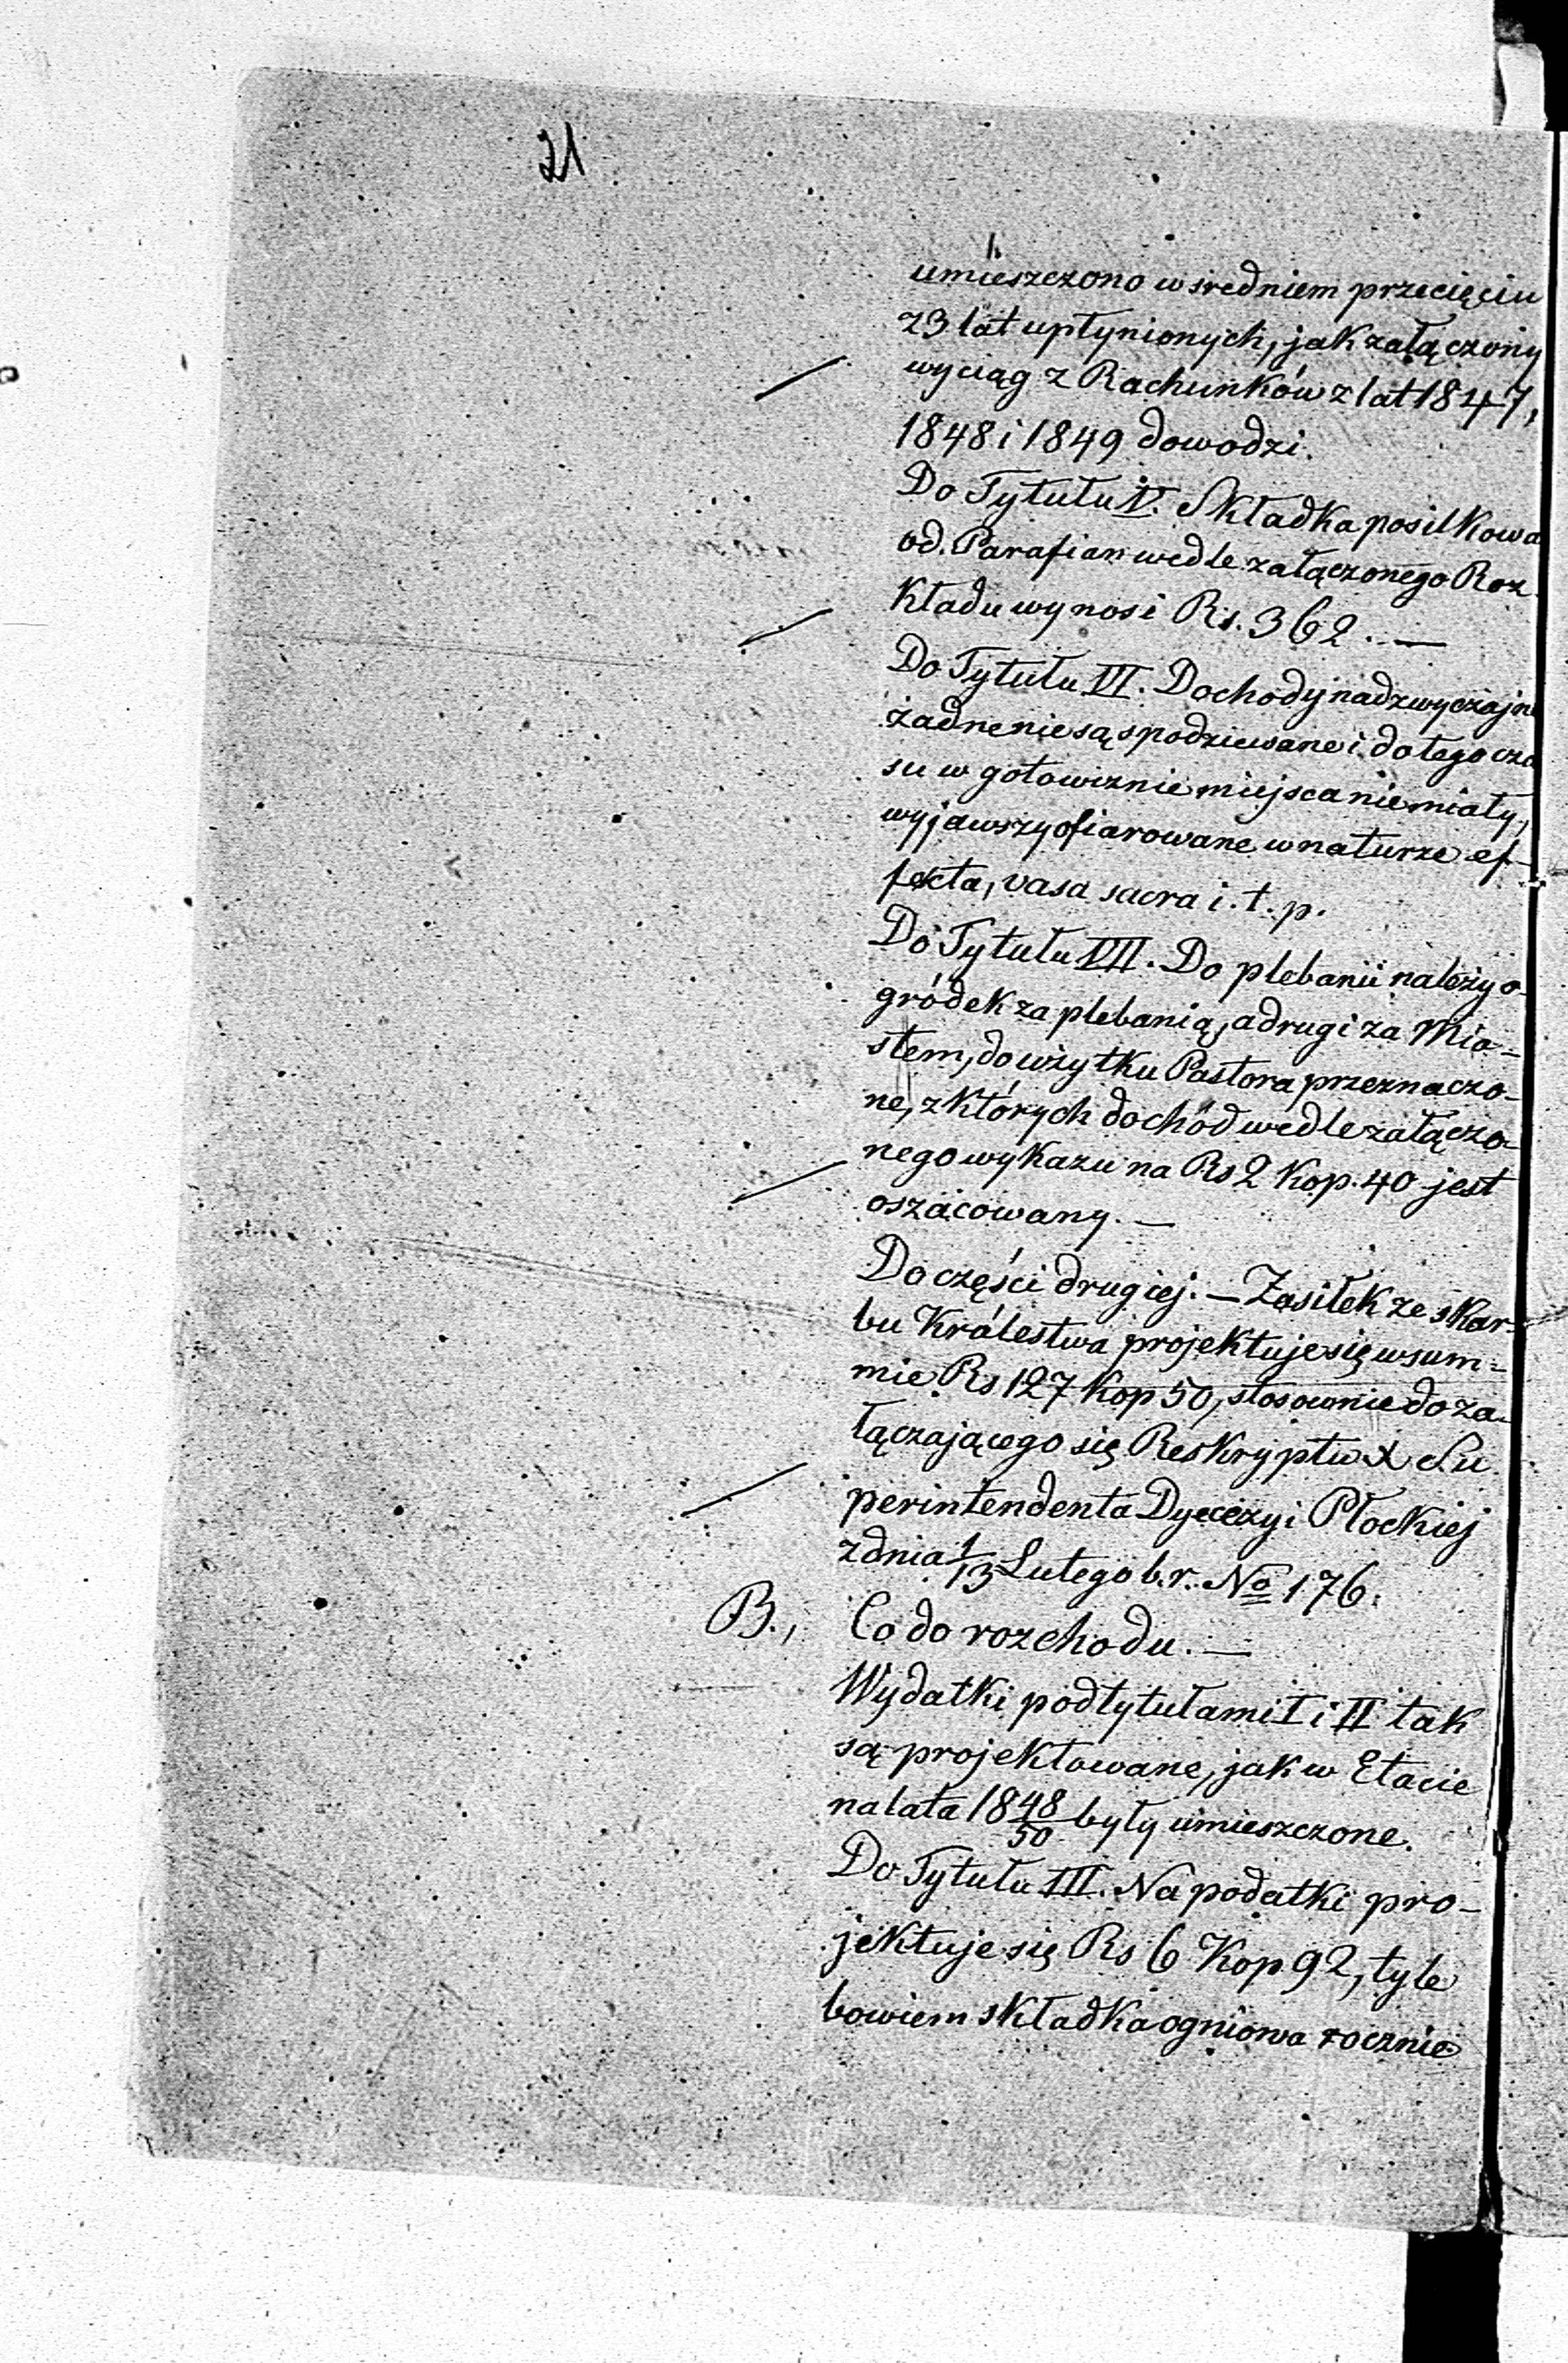 21
umieszczono w średniem przecięciu
z 3 lat upłynionych, jak załączony
wyciąg z Rachunków z lat 1847,
1848 i 1849 dowodzi.
Do Tytułu V. Składka posilkowa
od Parafian wedle załączonego Roz-
kładu wynosi Rs. 362. —
Do Tytułu VI. Dochody nadzwyczajne
żadne nie są spodziewane i do tego cza
su w gotowiznie miejsca nie miały,
wyjąwszy ofiarowane w naturze ef-
fekta, vasa sacra i. t. p.
Do Tytułu VII. Do plebanii należy o-
gródek za plebanią, a drugi za Mia-
stem, do użytku Pastora przeznaczo-
ne, z których dochód wedle załączo-
nego wykazu na Rs 2 Kop. 40 jest
oszacowany. —
Do części drugiej. — Zasiłek ze skar-
bu Królestwa projektuje się w sum-
mie Rs 127 Kop 50, stosownie do za-
łączającego się Reskryptu X Su
perintendenta Dyecezyi Płockiej
z dnia 1/13 Lutego b. r. No 176.
B., Co do rozchodu. —
Wydatki pod tytułami I i II tak
są projektowane, jak w Etacie
na lata 1848/50 były umieszczone.
Do Tytułu III. Na podatki pro-
jektuje się Rs 6 Kop 92, tyle
bowiem składka ogniowa rocznie